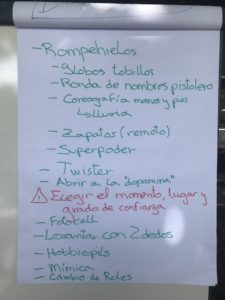 - Rompehielos
- globos tobillos
- Ronda de nombres pistolero
- Coreografía manos y pies
↳ lluvia
- Zapatos (remoto)
- Superpoder
- Twister
- Abrir a la "dopamina"
⚠ Elegir el momento, lugar y
grado de confianza
- Fotocall
- Levantar con 2 dedos
- Mímica
- Cambio de Roles